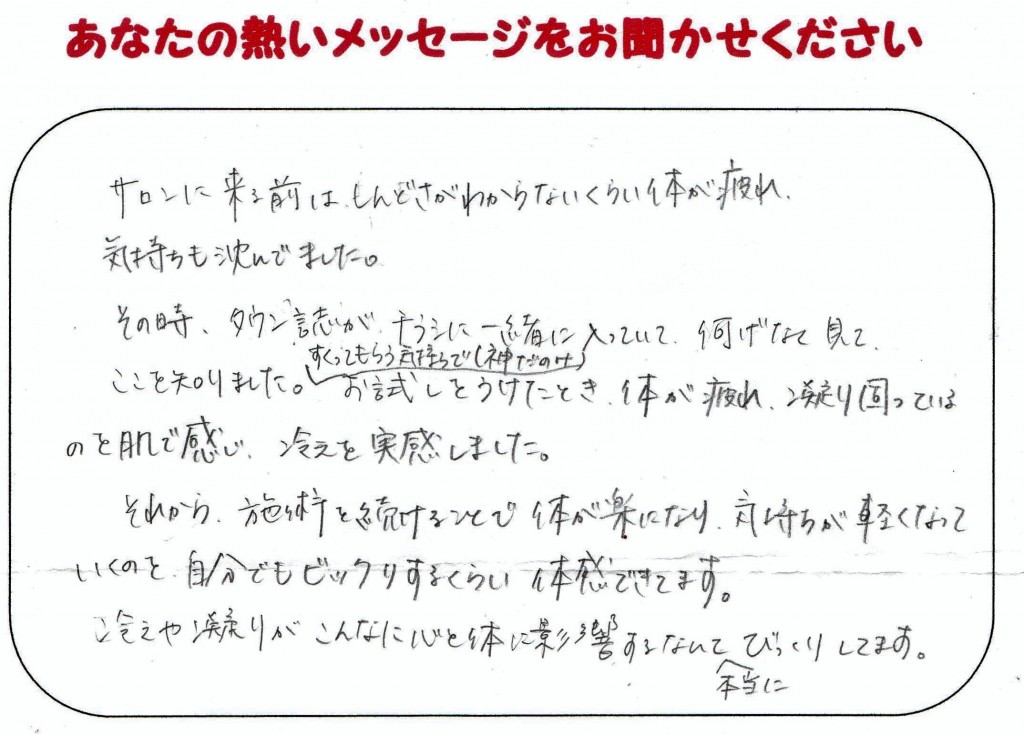 あなたの熱いメッセージをお聞かせください
サロンに来る前は、しんどさがわからないくらい体が疲れ、
気持ちも沈んでました。
その時、タウン誌が、チラシに一緒に入っていて、何げなく見て、
すくってもらう気持ちで(神だのみ)
ここを知りました。お試しをうけたとき、体が疲れ、凝り固っている
のを肌で感じ、冷えを実感しました。
それから、施術を続けることで体が楽になり、気持ちが軽くなって
いくのを、自分でもビックリするくらい体感できてます。
冷えや凝りがこんなに心と体に影響するなんてびっくりしてます。
本当に